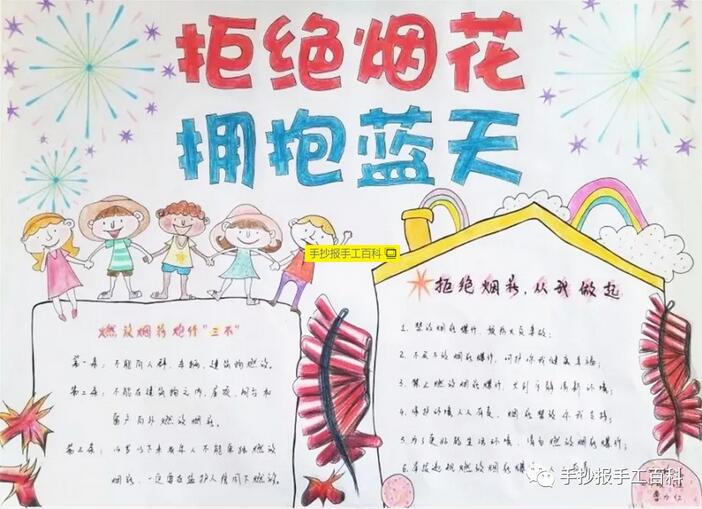 拒绝烟花
拥抱蓝天
手抄报手工百科
燃放烟花炮竹"三不"
拒绝烟花,从我做起
第一条:不能向人群、车辆、建筑物燃放。
第二条:不能在建筑物之内、屋顶、阳台和
窗户向外燃放烟花。
第三条:14岁以下未成年人不能单独燃放
烟花,一定要在监护人陪同下燃放。
1.禁放烟花爆竹,
2.不买不放烟花爆竹,呵护你我健康
3.禁止燃放烟花爆竹,共创
4.保护环境人人有责,烟花禁放你我
5.为了更好的生活环境,请勿燃放烟花爆竹;
6.燃放烟花爆竹
手抄报手工百科